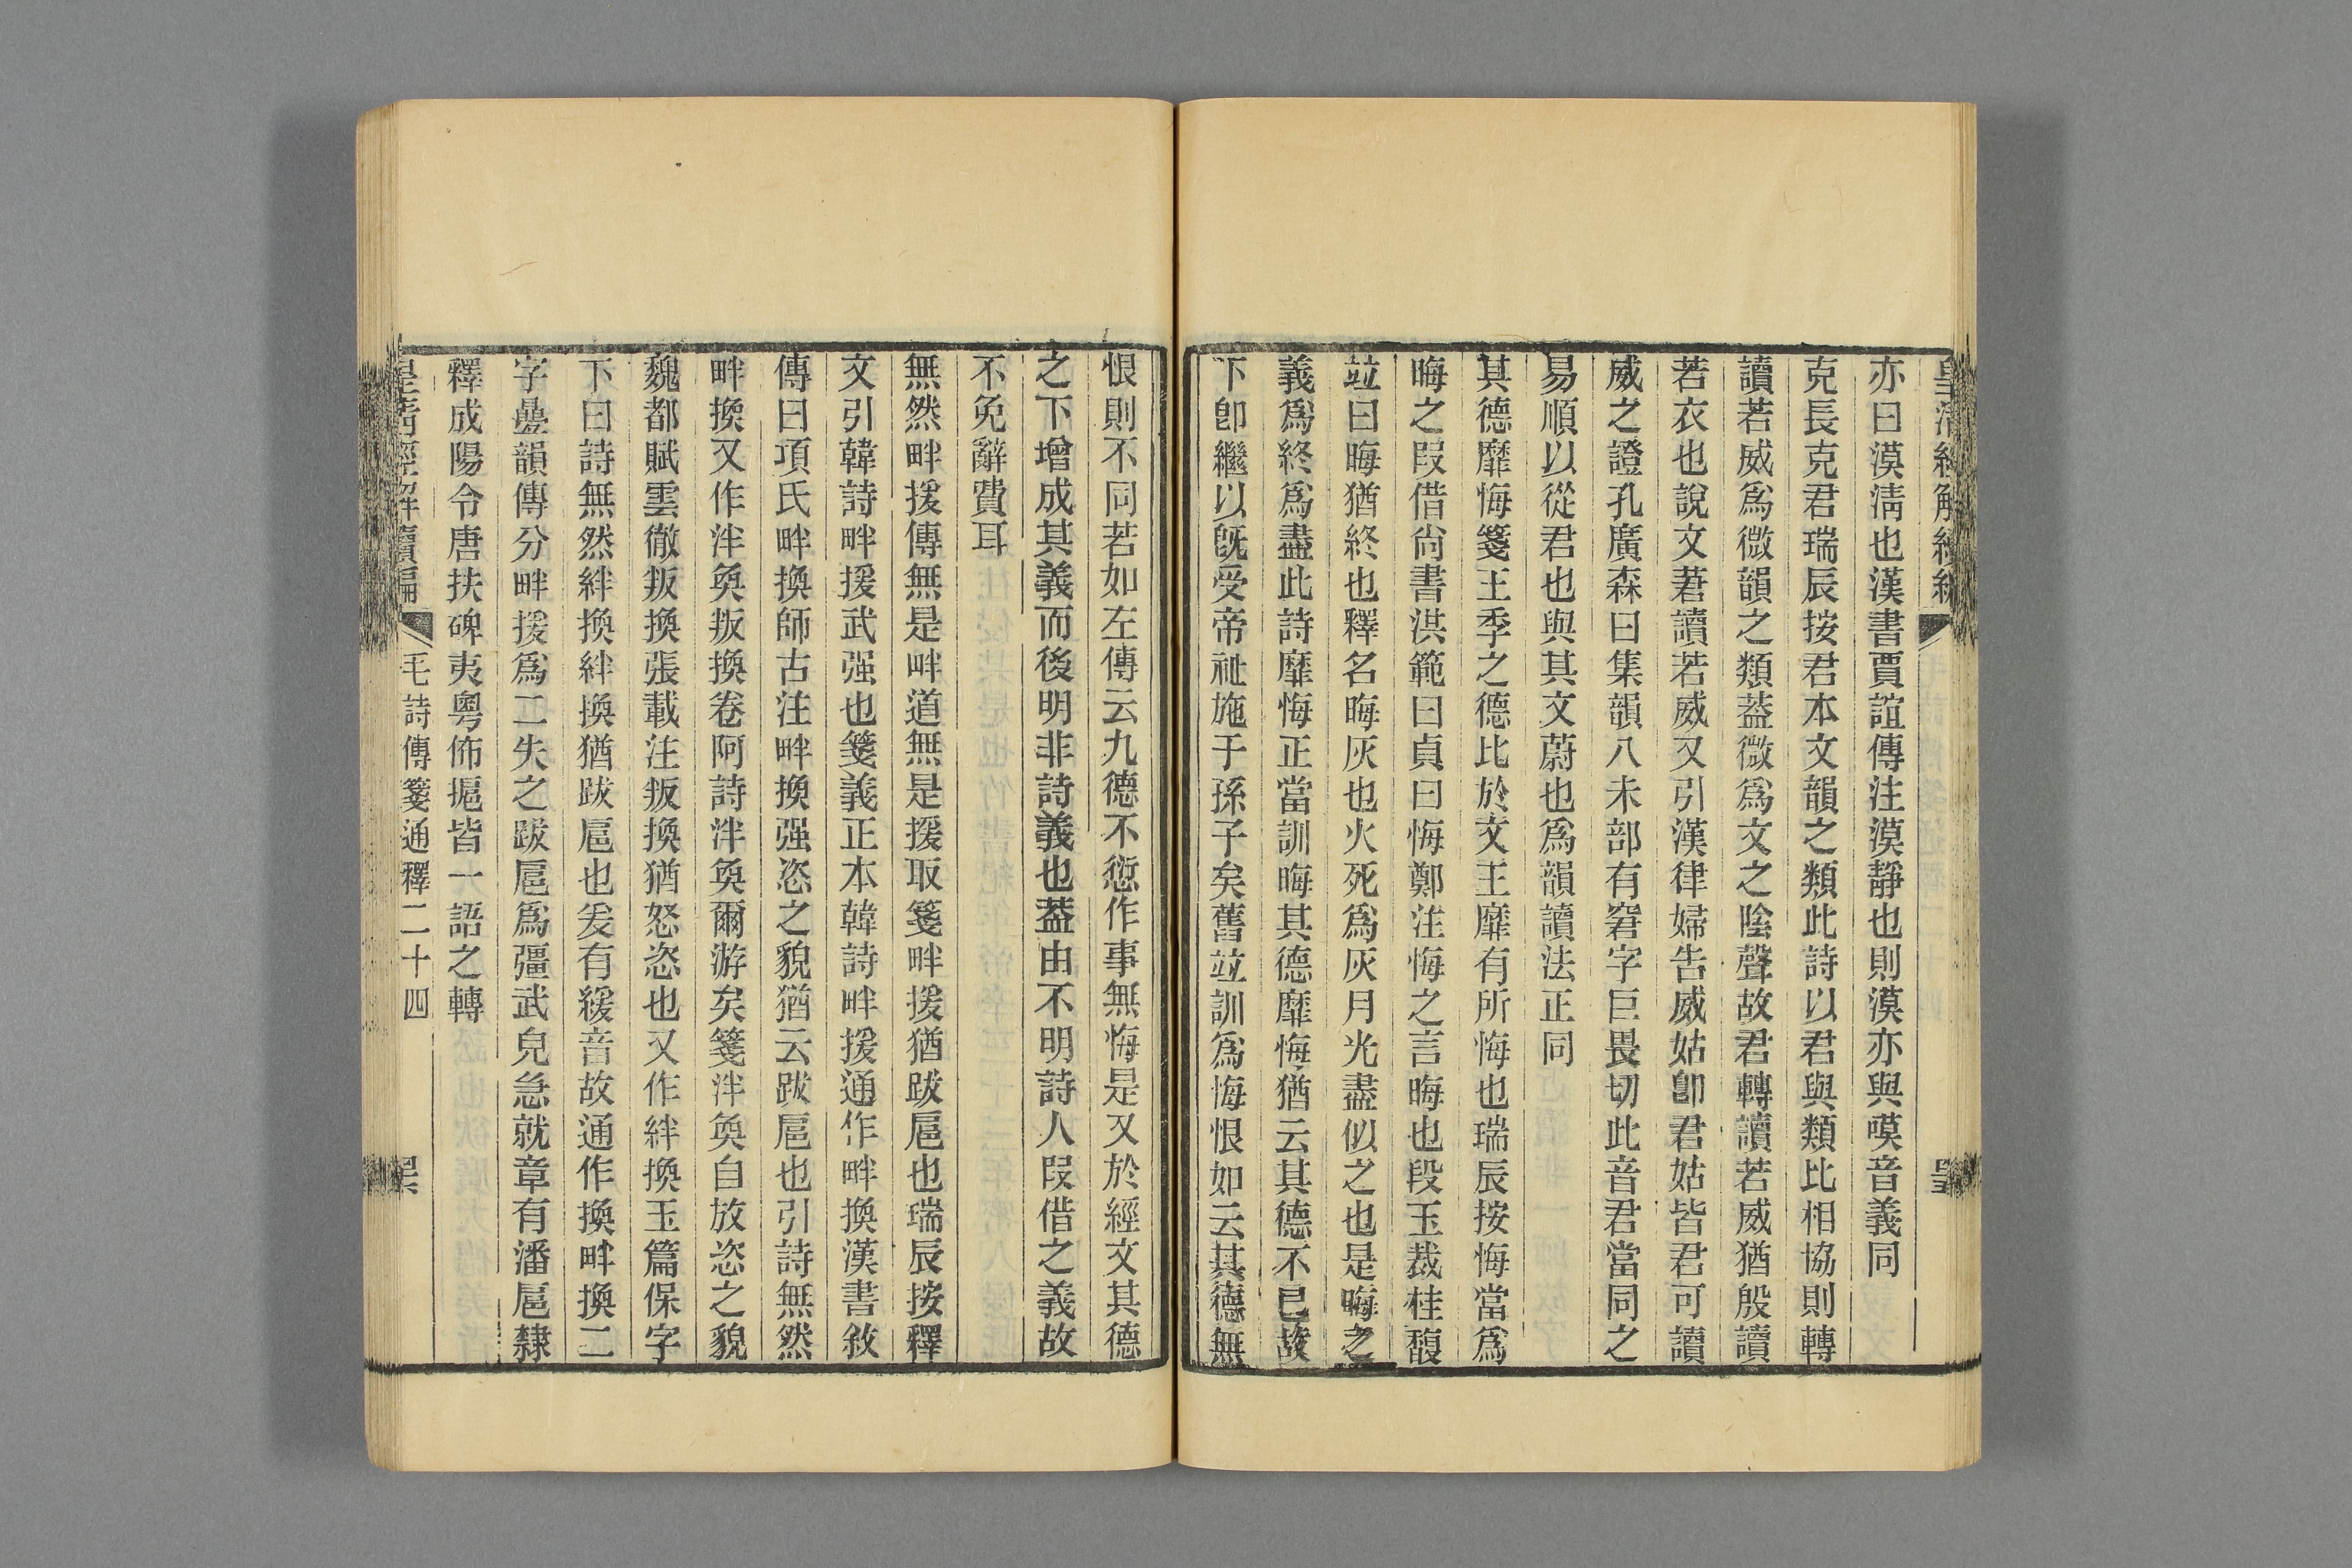 皇清經解續編
亦曰漠淸也漢書賈誼傳注漠靜也則漠亦與嗼音義同
克長克君瑞辰按君本文韻之類此詩以君與類比相協則轉
讀若威爲微韻之類葢微爲文之陰聲故君轉讀若威猶殷讀
若衣也說文莙讀若威又引漢律婦告威姑卽君姑皆君可讀
威之證孔廣森曰集韻八未部有窘字巨畏切此音君當同之
易順以從君也與其文蔚也爲韻讀法正同
其德靡悔箋王季之德比於文王靡有所悔也瑞辰按悔當爲
晦之叚借尙書洪範曰貞曰悔鄭注悔之言晦也段玉裁桂馥
竝曰晦猶終也釋名晦灰也火死爲灰月光盡似之也是晦之
義爲終爲盡此詩靡悔正當訓晦其德靡悔猶云其德不已故
下卽繼以旣受帝祉施于孫子矣舊竝訓爲悔恨如云其德無
恨則不同若如左傳云九德不愆作事無悔是又於經文其德
之下增成其義而後明非詩義也葢由不明詩人叚借之義故
不免辭費耳
無然畔援傳無是畔道無是援取箋畔援猶跋扈也瑞辰按釋
文引韓詩畔援武强也箋義正本韓詩畔援通作畔換漢書敘
傳曰項氏畔換師古注畔換强恣之貌猶云跋扈也引詩無然
畔換又作泮奐叛換卷阿詩泮奐爾游矣箋泮奐自放恣之貌
魏都賦雲徹叛換張載注叛換猶怒恣也又作絆換玉篇保字
下曰詩無然絆換絆換猶跋扈也爰有緩音故通作換畔換二
字疊韻傳分畔援爲二失之跋扈爲彊武皃急就章有潘扈隸
釋成陽令唐扶碑夷粵佈摝皆一語之轉
皇淸經解續編
毛詩傳箋通釋二十四